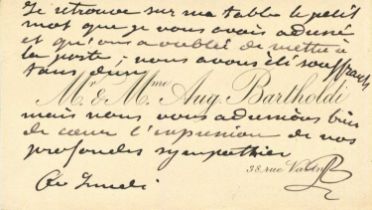 Je retrouve sur ma table le petit
mot que je vous avais adressé
et qu'on a oublié de mettre à
la poste ; nous avons été souffrants
tous deux
Mr & Mme Aug. Bartholdi
mais nous vous adressions bien
de cœur l'expression de nos
profondes sympathies
38 rue